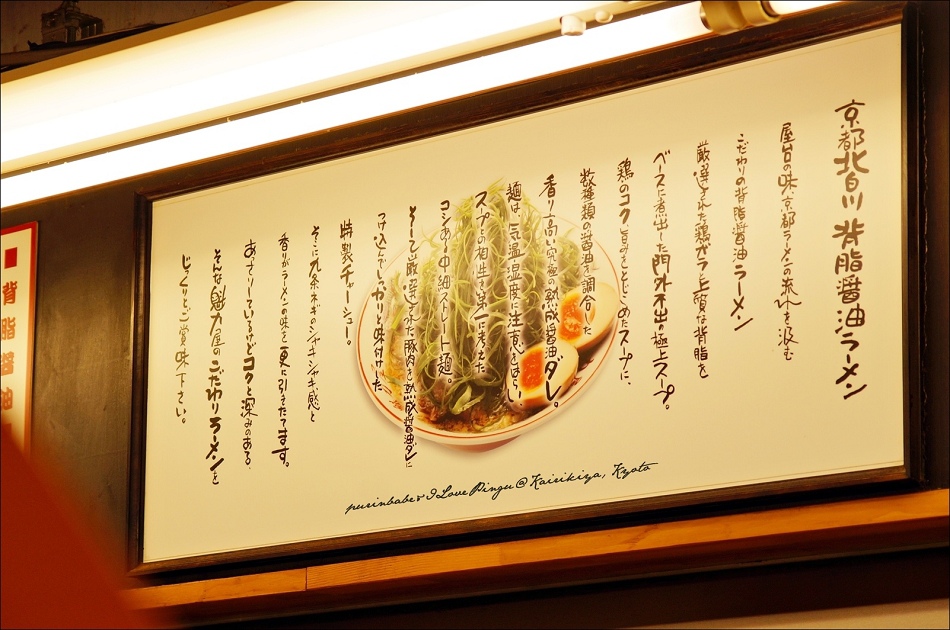 京都北白川 背脂醤油ラーメン
屋台の味、京都ラーメンの流れを汲む
こだわりの背脂醤油ラーメン
厳選された鶏ガラと上質な背脂を
ベースに煮出した門外不出の極上スープ。
鶏のコク、旨みをとじこめたスープに、
数種類の醤油を調合した
香り高い究極の熟成醤油ダレ。
麺は、気温、湿度に注意をはらい、
スープとの相性を第一に考えた
コシある中細ストレート麺。
そして厳選された豚肉を熟成醤油ダレに
つけ込んでしっかり味付けした
特製チャーシュー。
そこに九条ネギのシャキシャキ感と
香りがラーメンの味を更に引きたてます。
あっさりしているけどコクと深みのある、
そんな魁力屋のこだわりラーメンを
じっくりとご賞味下さい。
purinbabe & I Love Pingu @ Kairikiya, Kyoto
背脂醤油